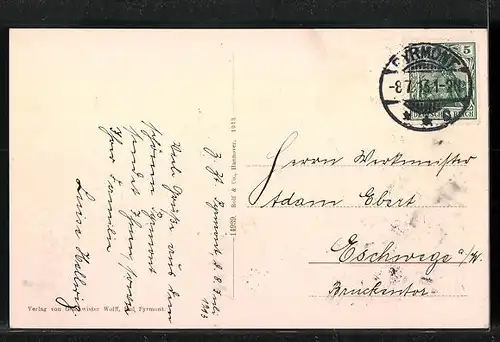 Z. Zt. Pyrmont, d. 8. Juli
1913
Viele Grüße aus dem
schönen Pyrmont
sendet Ihnen, sowie
Ihrer Familie
Luise Hellwig.
11989. Rolf & Co., Hannover, 1913
Verlag von Geschwister Wolff, Bad Pyrmont.
PYRMONT
-8.7.13.1-2N
5
DEUTSCHES REICH
Herrn Werkmeister
Adam Ebert
Eschwege a/W.
Brückentor